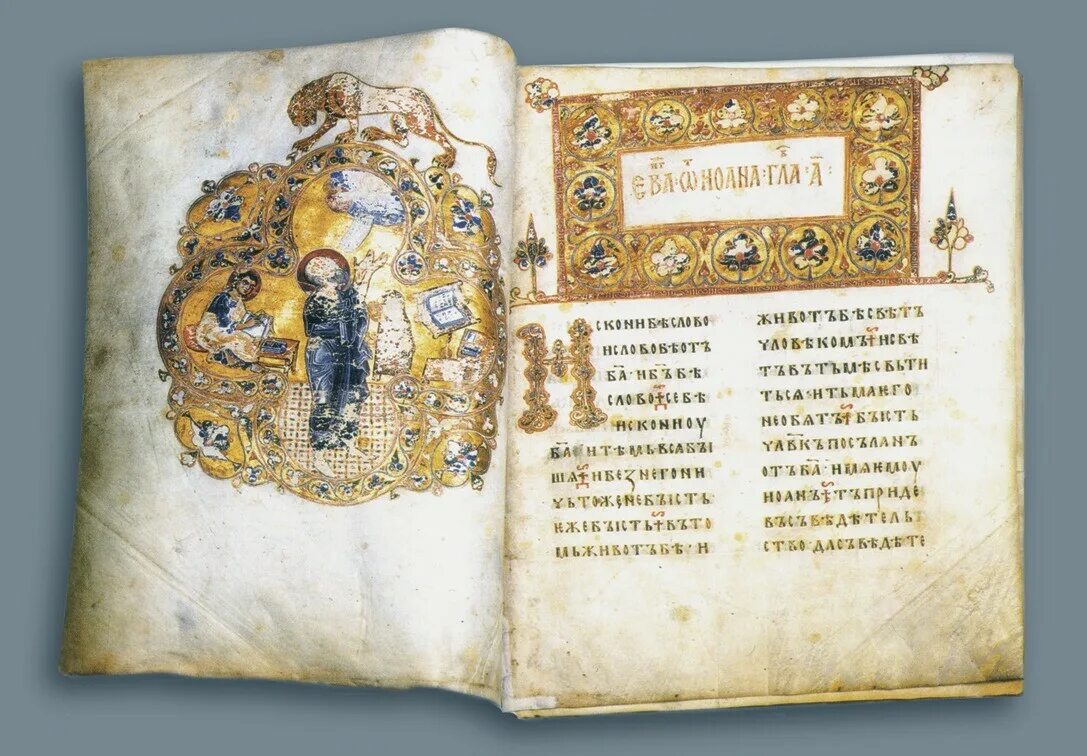 ЕВА·Ѿ ИОАНА·ГЛА·А҃·
ИСКОНИ БѢ СЛОВО
И СЛОВО БѢ ОТЪ
Б҃А И Б҃Ъ БѢ
СЛОВО СЕ БѢ
ИСКОНИ ОУ
Б҃А И ТѢМЬ ВСА БЫ
ША И БЕЗ НЕГО НИ
ЧЬТОЖЕ НЕ БЫСТЬ
ЕЖЕ БЫСТЬ ВЪ ТО
МЬ ЖИВОТЪ БѢ И
ЖИВОТЪ БѢ СВѢТЪ
ЧЛОВѢКОМЪ И СВѢ
ТЪ ВЪ ТЬМѢ СВЬТИ
ТЬСЯ И ТЬМА ѤГО
НЕ ОБЯТЪ БЫСТЬ
ЧЛ҃ВКЪ ПОСЪЛАНЪ
ОТЪ Б҃А ИМЯ ѤМОУ
ИОАНЪ ТЪ ПРИДЕ
ВЪ СЪВѢДѢТЕЛЬ
СТВО ДА СЪВѢДѢТЕ